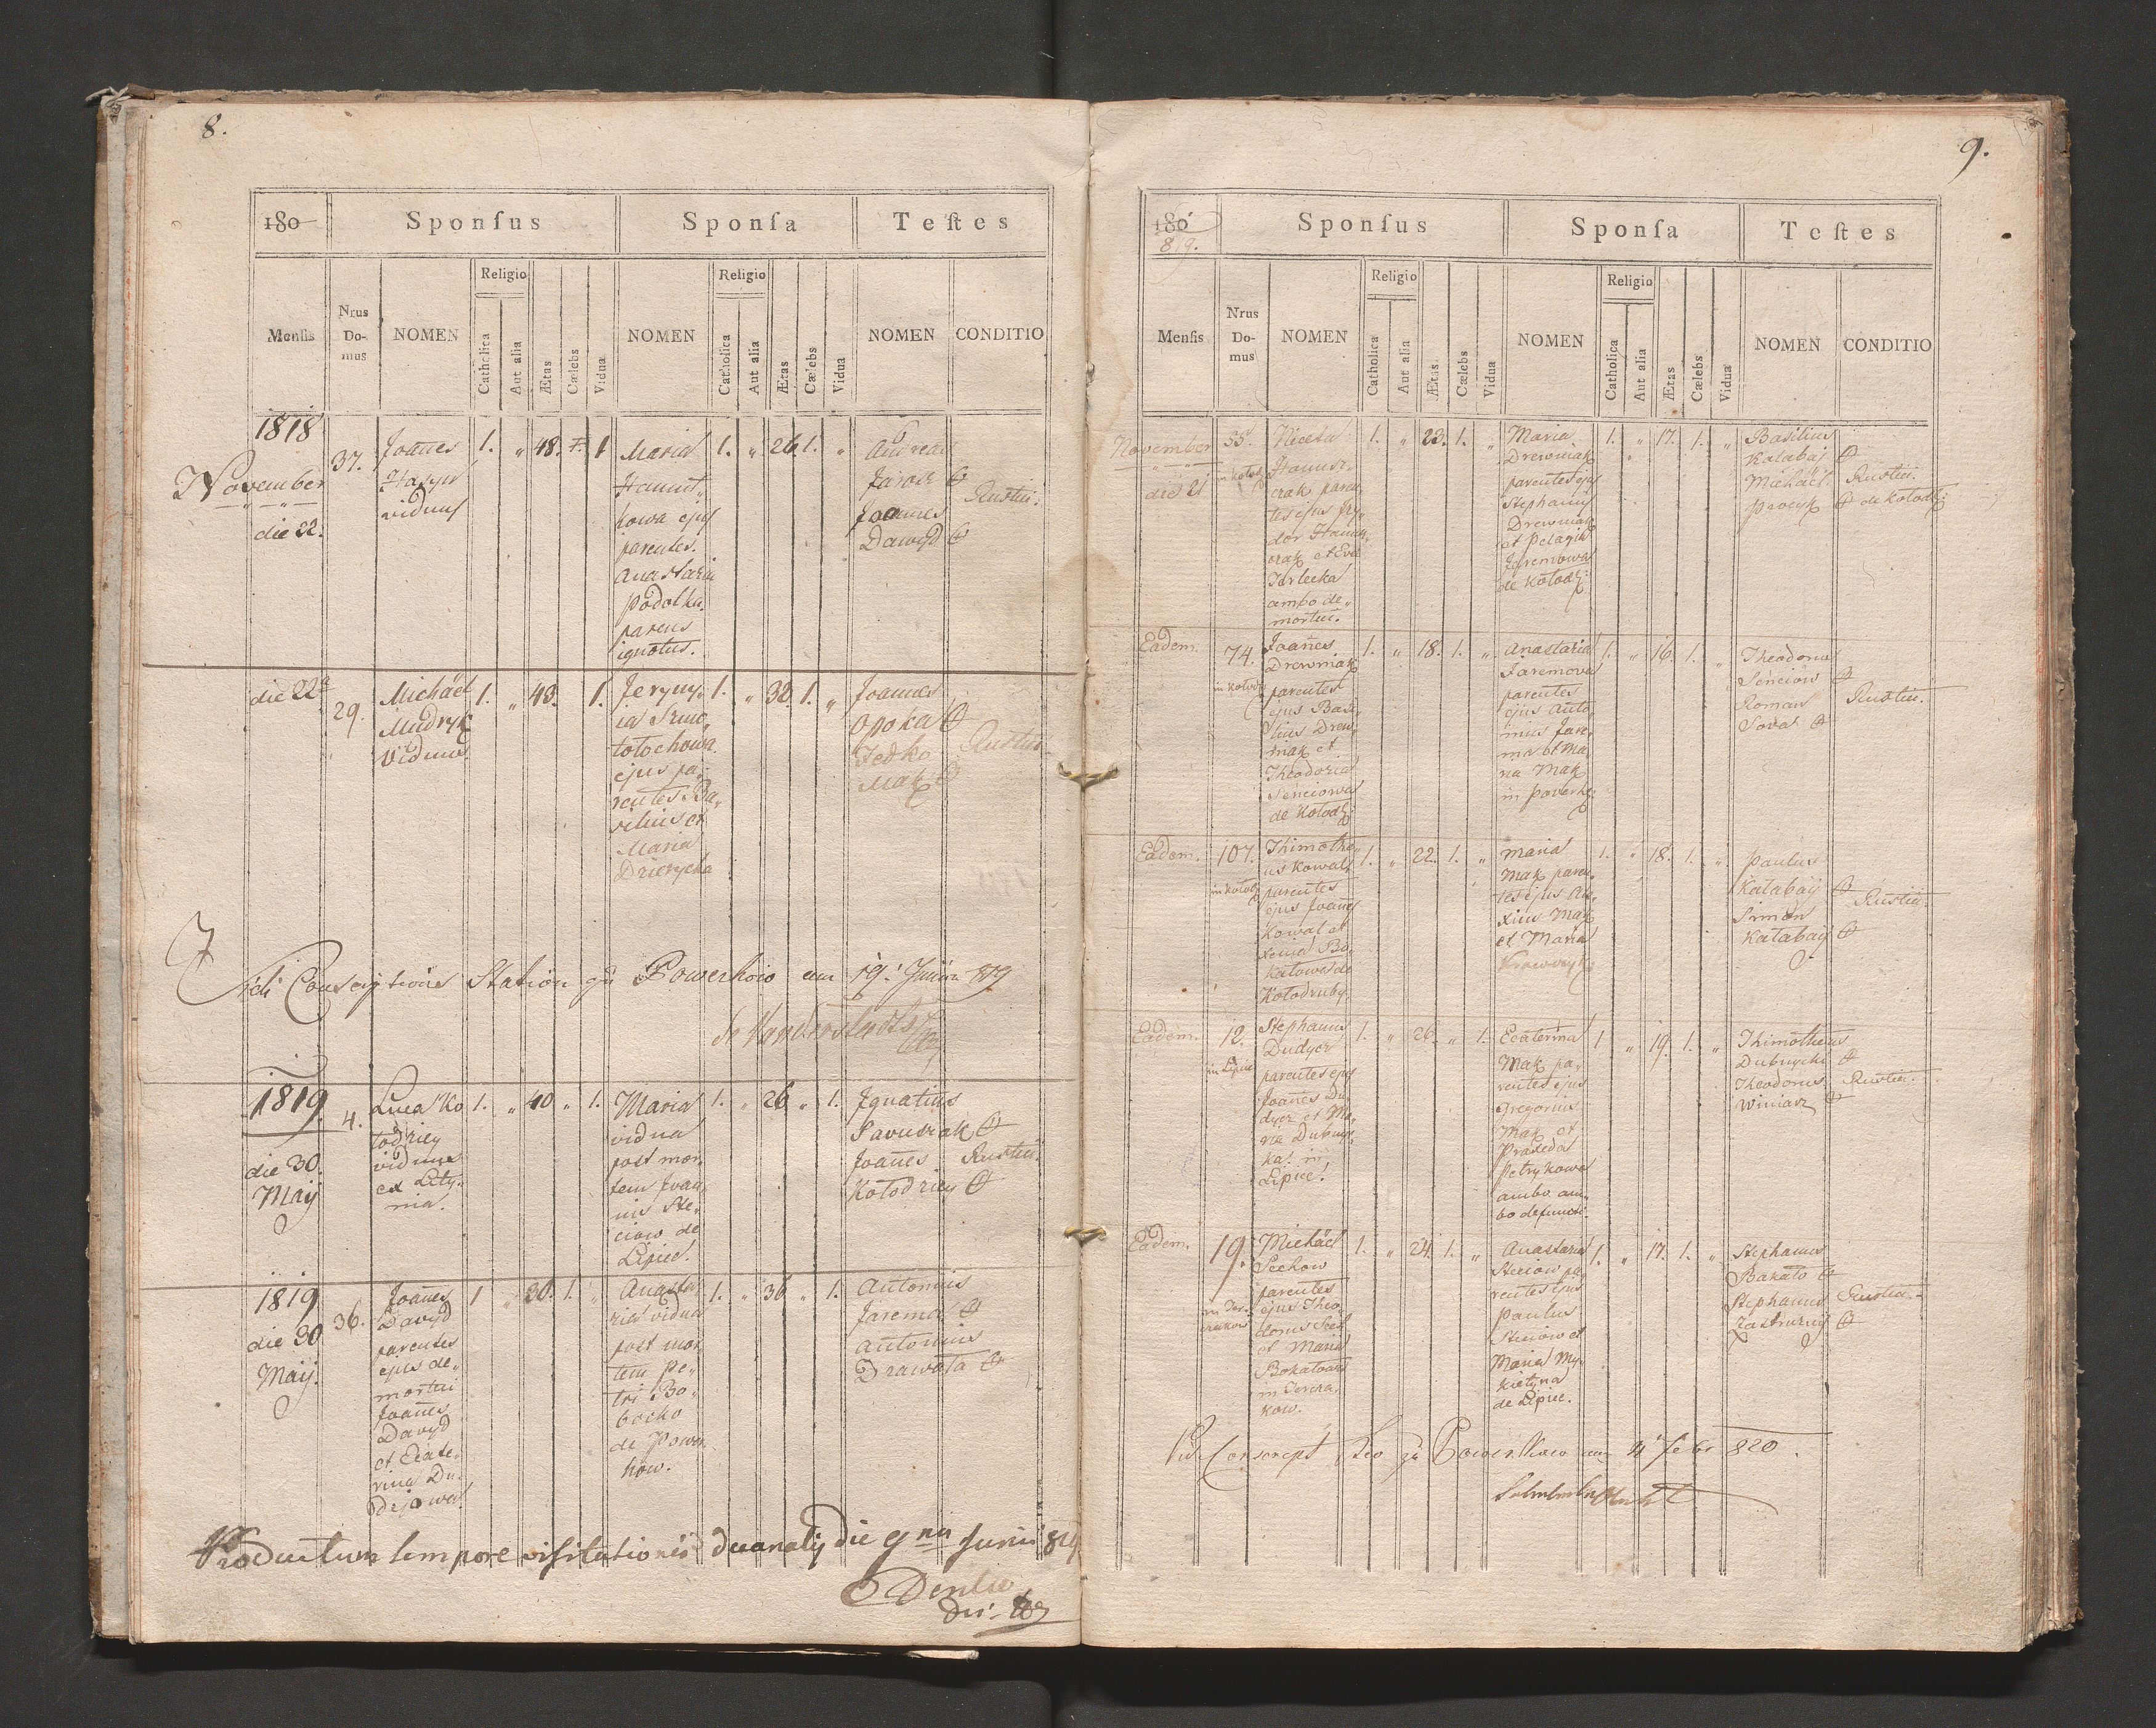 8.
180 Sponſus Sponſa Teſtes
Menſis Nrus Domus NOMEN Religio Catholica Aut alia Ætas Cælebs Vidua NOMEN Religio Catholica Aut alia Ætas Cælebs Vidua NOMEN CONDITIO
1818
November
die 22.
37.
Joañes
viduus
1. " 48. 1
Maria
kowa ejus
parentes.
Anastazia
Podolka.
parens
ignotus.
1. " 26. 1. "
Andreas
Jarosz
Joannes
Dawyd
Rustici.
die 22a
29.
Michael
Mudryk
Viduus.
1. " 43. 1.
ejus pa,,
rentes Ba,,
silius et
Maria
1. " 32. 1. "
Joannes
Opoka
Fedko
Mak
Rustici.
Vidi Conscriptions Station zu Powerkow am 19. Junii 819
1819.
die 30.
Maij
4.
Luca Ko
łodziey
viduus
ex Lity,,
nia.
1. " 40 " 1.
Maria
vidua
post mor,,
tem Joan,,
nis Ste,,
ciow de
Lipice.
1. " 26 " 1.
Ignatius
Joañes
Kołodziey
Rustici.
1819
die 30
Maij.
36.
Joañes
Davyd
parentes
ejus de,,
mortui
Joañes
Davyd
et Ecate,,
rina Du,,
1 " 30. 1. "
Anasta,,
zia vidua
post mor
tem Pe,,
tri Bo,,
bocko
de Power
kow.
1. " 36 " 1.
Antonius
Jarema
Antonius
Drawata
Productum tempore visitationis decanalis die 9na Junii 819
9.
180 Sponſus Sponſa Teſtes
819.
Menſis Nrus Domus NOMEN Religio Catholica Aut alia Ætas Cælebs Vidua NOMEN Religio Catholica Aut alia Ætas Cælebs Vidua NOMEN CONDITIO
November
die 21
35.
in Kołodr.
Niceta
parен,,
tes ejus
et Eva
ambo de,,
mortui.
1. " 23. 1. "
Maria
Drewniak
parentes ejus
Stephanus
Drewniak
et Pelagia
Jaremowa
de Kołodr:
1. " 17. 1. "
Basilius
Kałabaj
Michaël
Procyk
Rustici.
de Kołodr:
Eadem.
74.
in Kołodr
Joañes
Drewniak
parentes
ejus Basi,,
lius Drew,,
niak et
Theodozia
Senciowa
de Kołodr:
1. " 18. 1. "
Anastazia
Jaremova
parentes
ejus Anto,,
nius Jare,,
ma et Ma,,
ria Mak
in Powerk:
1. " 16. 1. "
Theodorus
Senciow
Roman
Sova
Rustici.
Eadem.
107.
in Kołodr
Thimothe,,
us Kowal
parentes
ejus Joañes
Kowal et
Xenia Bo,,
katowa de
Kołodruby.
1. " 22. 1. "
Maria
Mak paren,,
tes ejus Ale,,
xius Mak
et Maria
1. " 18. 1. "
Paulus
Kałabay
Simon
Kałabay
Rustici.
Eadem.
12.
in Lipice
Stephanus
Dudycz
parentes ejus
Joañes Du,,
dycz et Ma,,
ria Dubnyc,,
ka in
Lipice.
1. " 26. " 1.
Ecaterina
Mak pa,,
rentes ejus
Gregorius
Mak et
Praxeda
Petrykowa
ambo am,,
bo defuncti.
1 " 19. 1. "
Thimotheus
Dubnycki
Theodorus
Winiarz
Rustici.
Eadem.
19.
Michaël
Sechow
parentes
ejus Theo,,
dorus Sech
et Maria
1. " 24. 1. "
Anastazia
Steciow pa,,
rentes ejus
Paulus
Steciow et
Maria My,,
kietyna
de Lipice.
1. " 17. 1. "
Stephanus
Bakało
Stephanus
Rustici.
Vidi Conscript Reo zu Powerkow am 4 Febr 820.